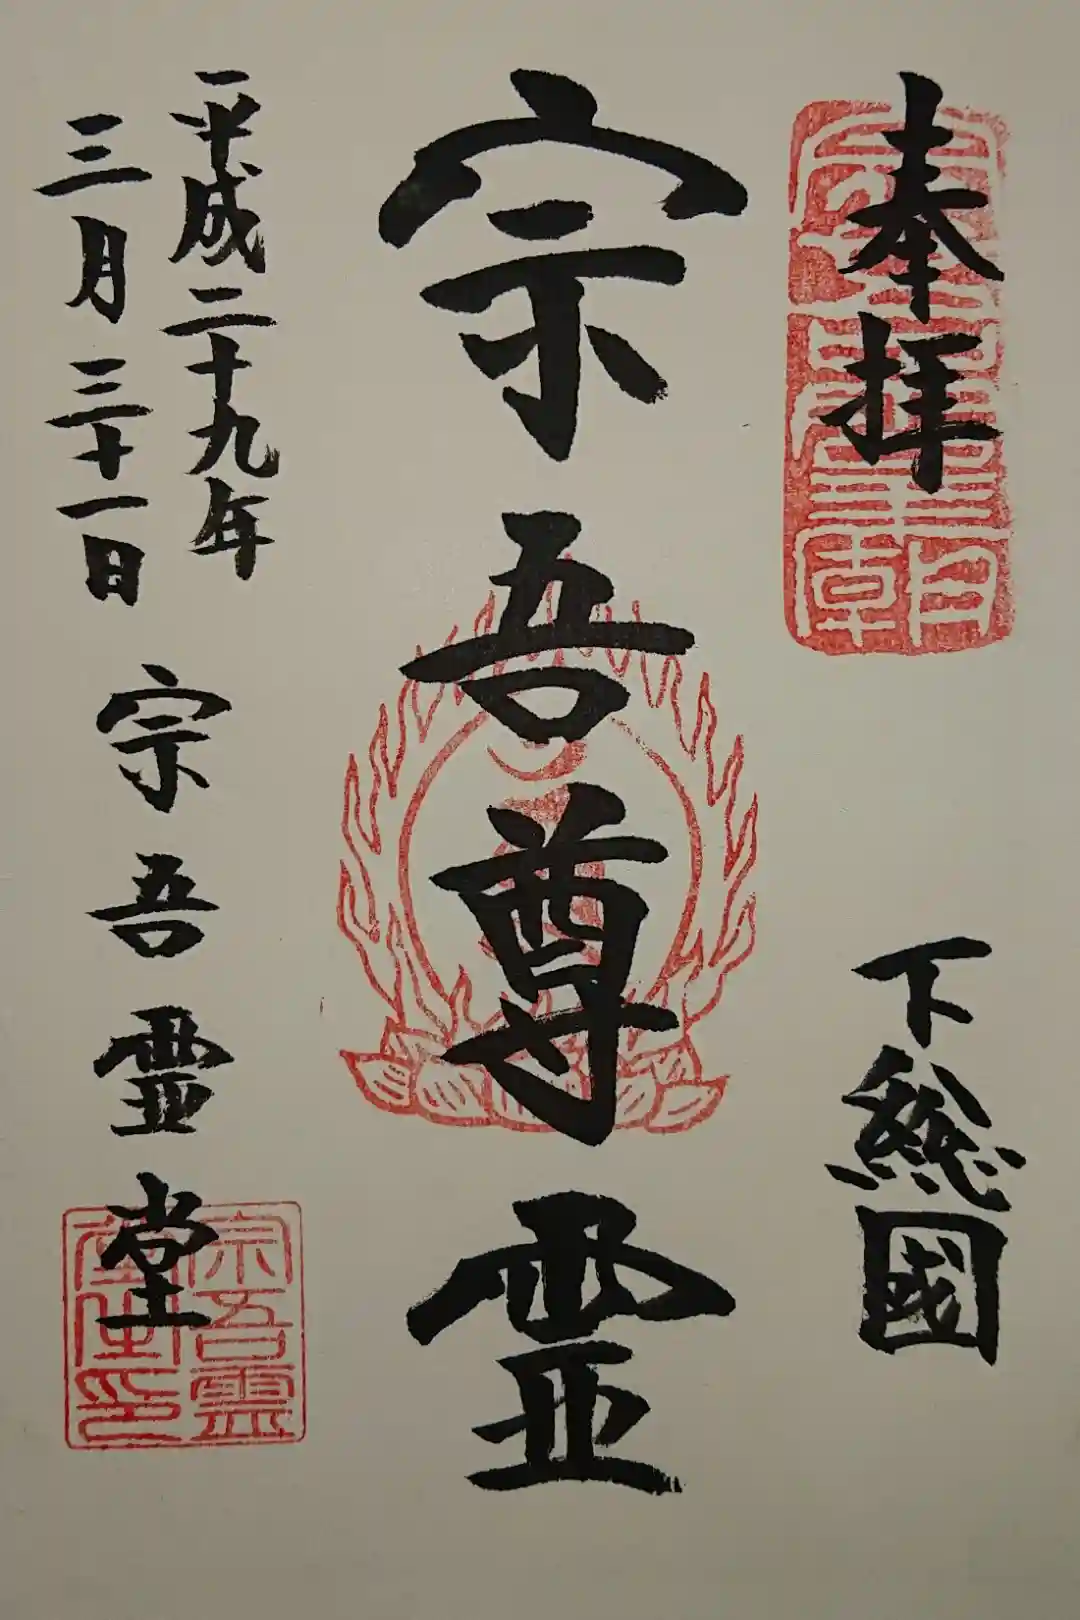 奉拝
下総國
宗吾尊霊
平成二十九年
三月三十一日
宗吾霊堂
宗吾霊
堂之印